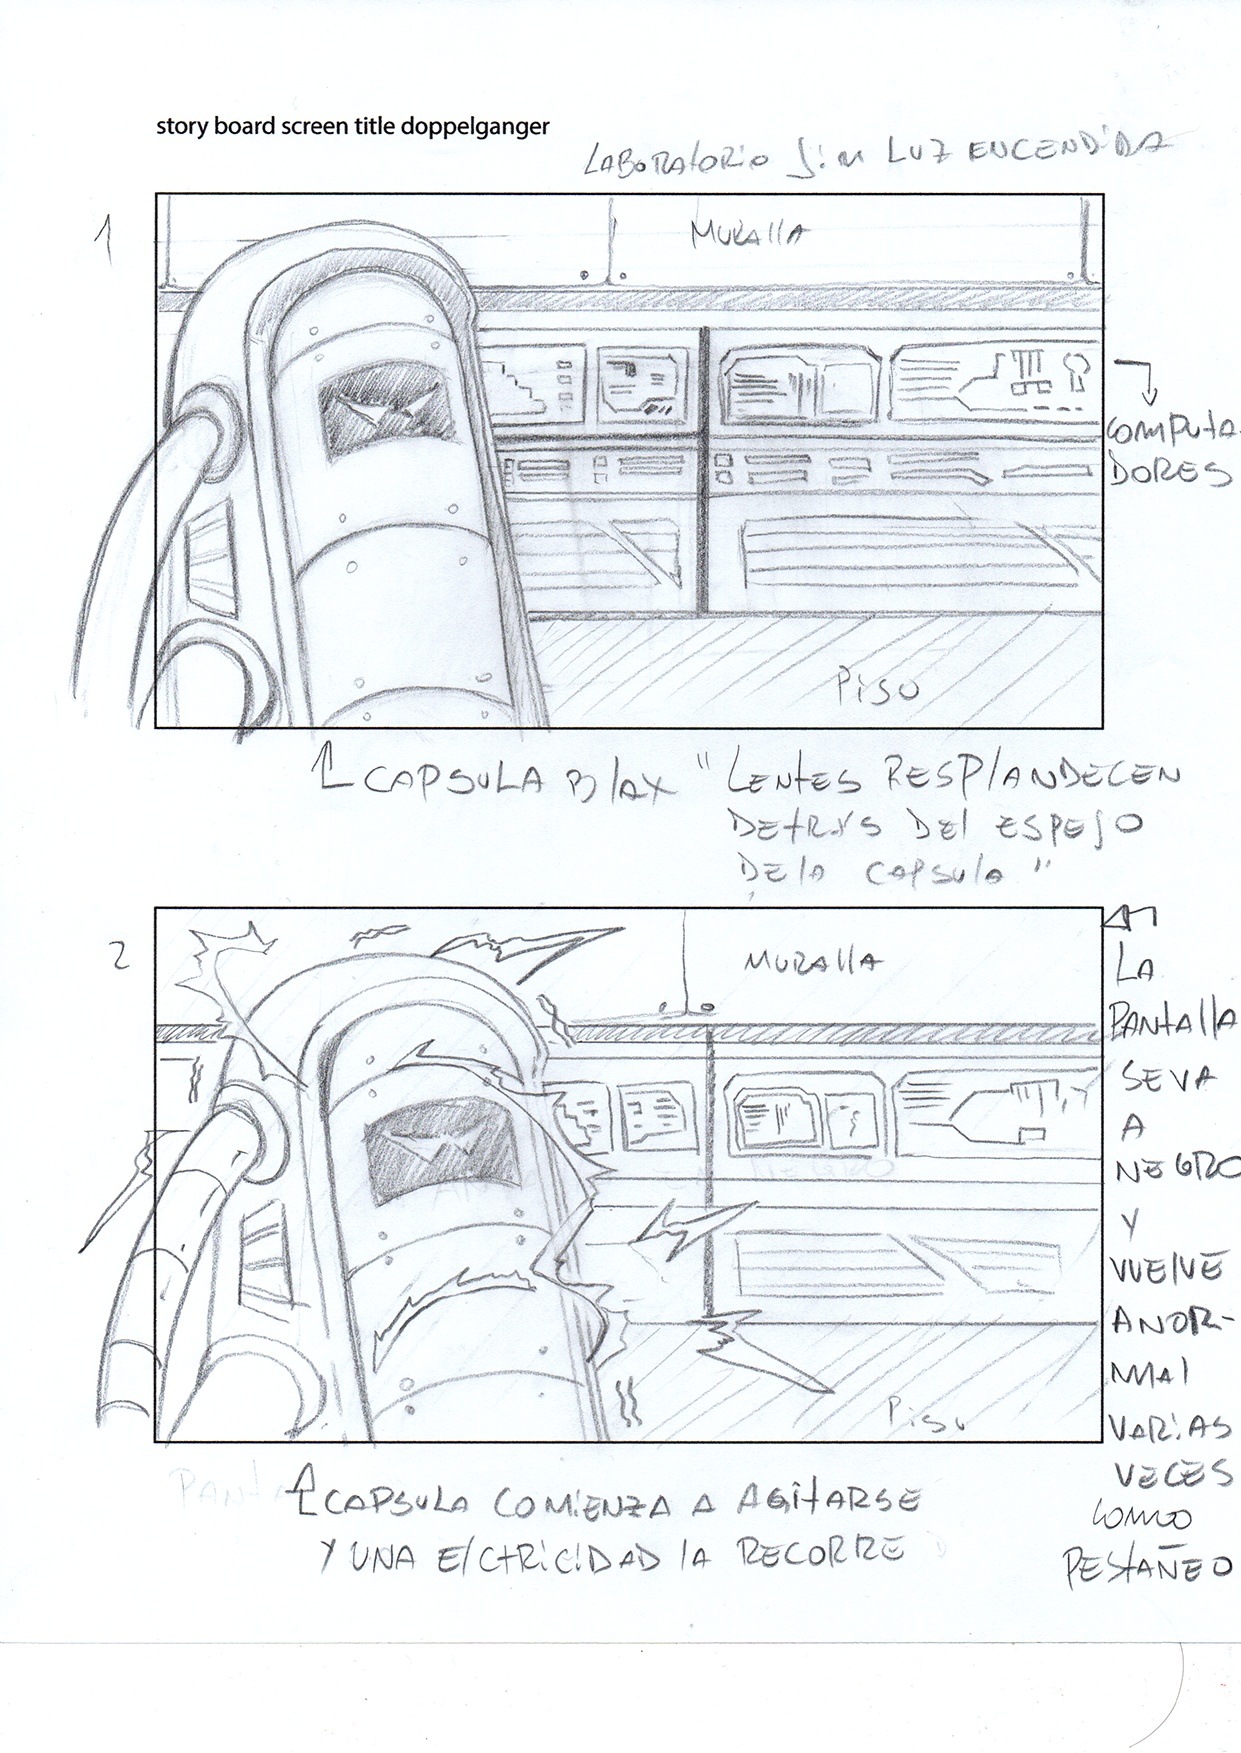 story board screen title doppelganger
LABORATORIO Jim LUZ ENCENDIDA
1
MURALLA
COMPUTA-
DORES
PISO
CAPSULA BLAX "LENTES RESPLANDECEN
DETRAS DEL ESPEJO
DE LA CAPSULA"
2
MURALLA
LA
PANTALLA
SE VA
A
NEGRO
Y
VUELVE
ANOR-
MAL
VARIAS
VECES
COMO
PESTAÑEO
NEGRO
PISO
CAPSULA COMIENZA A AGITARSE
Y UNA ELCTRICIDAD LA RECORRE